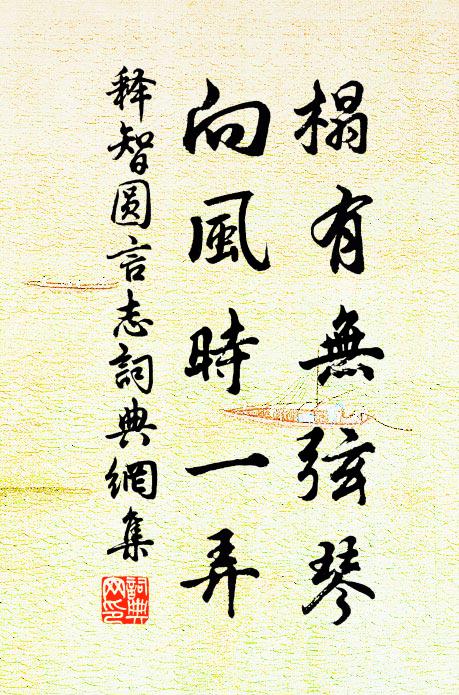 榻有無弦琴
向風時一弄
释智圆言志詞典網集
詞典網印